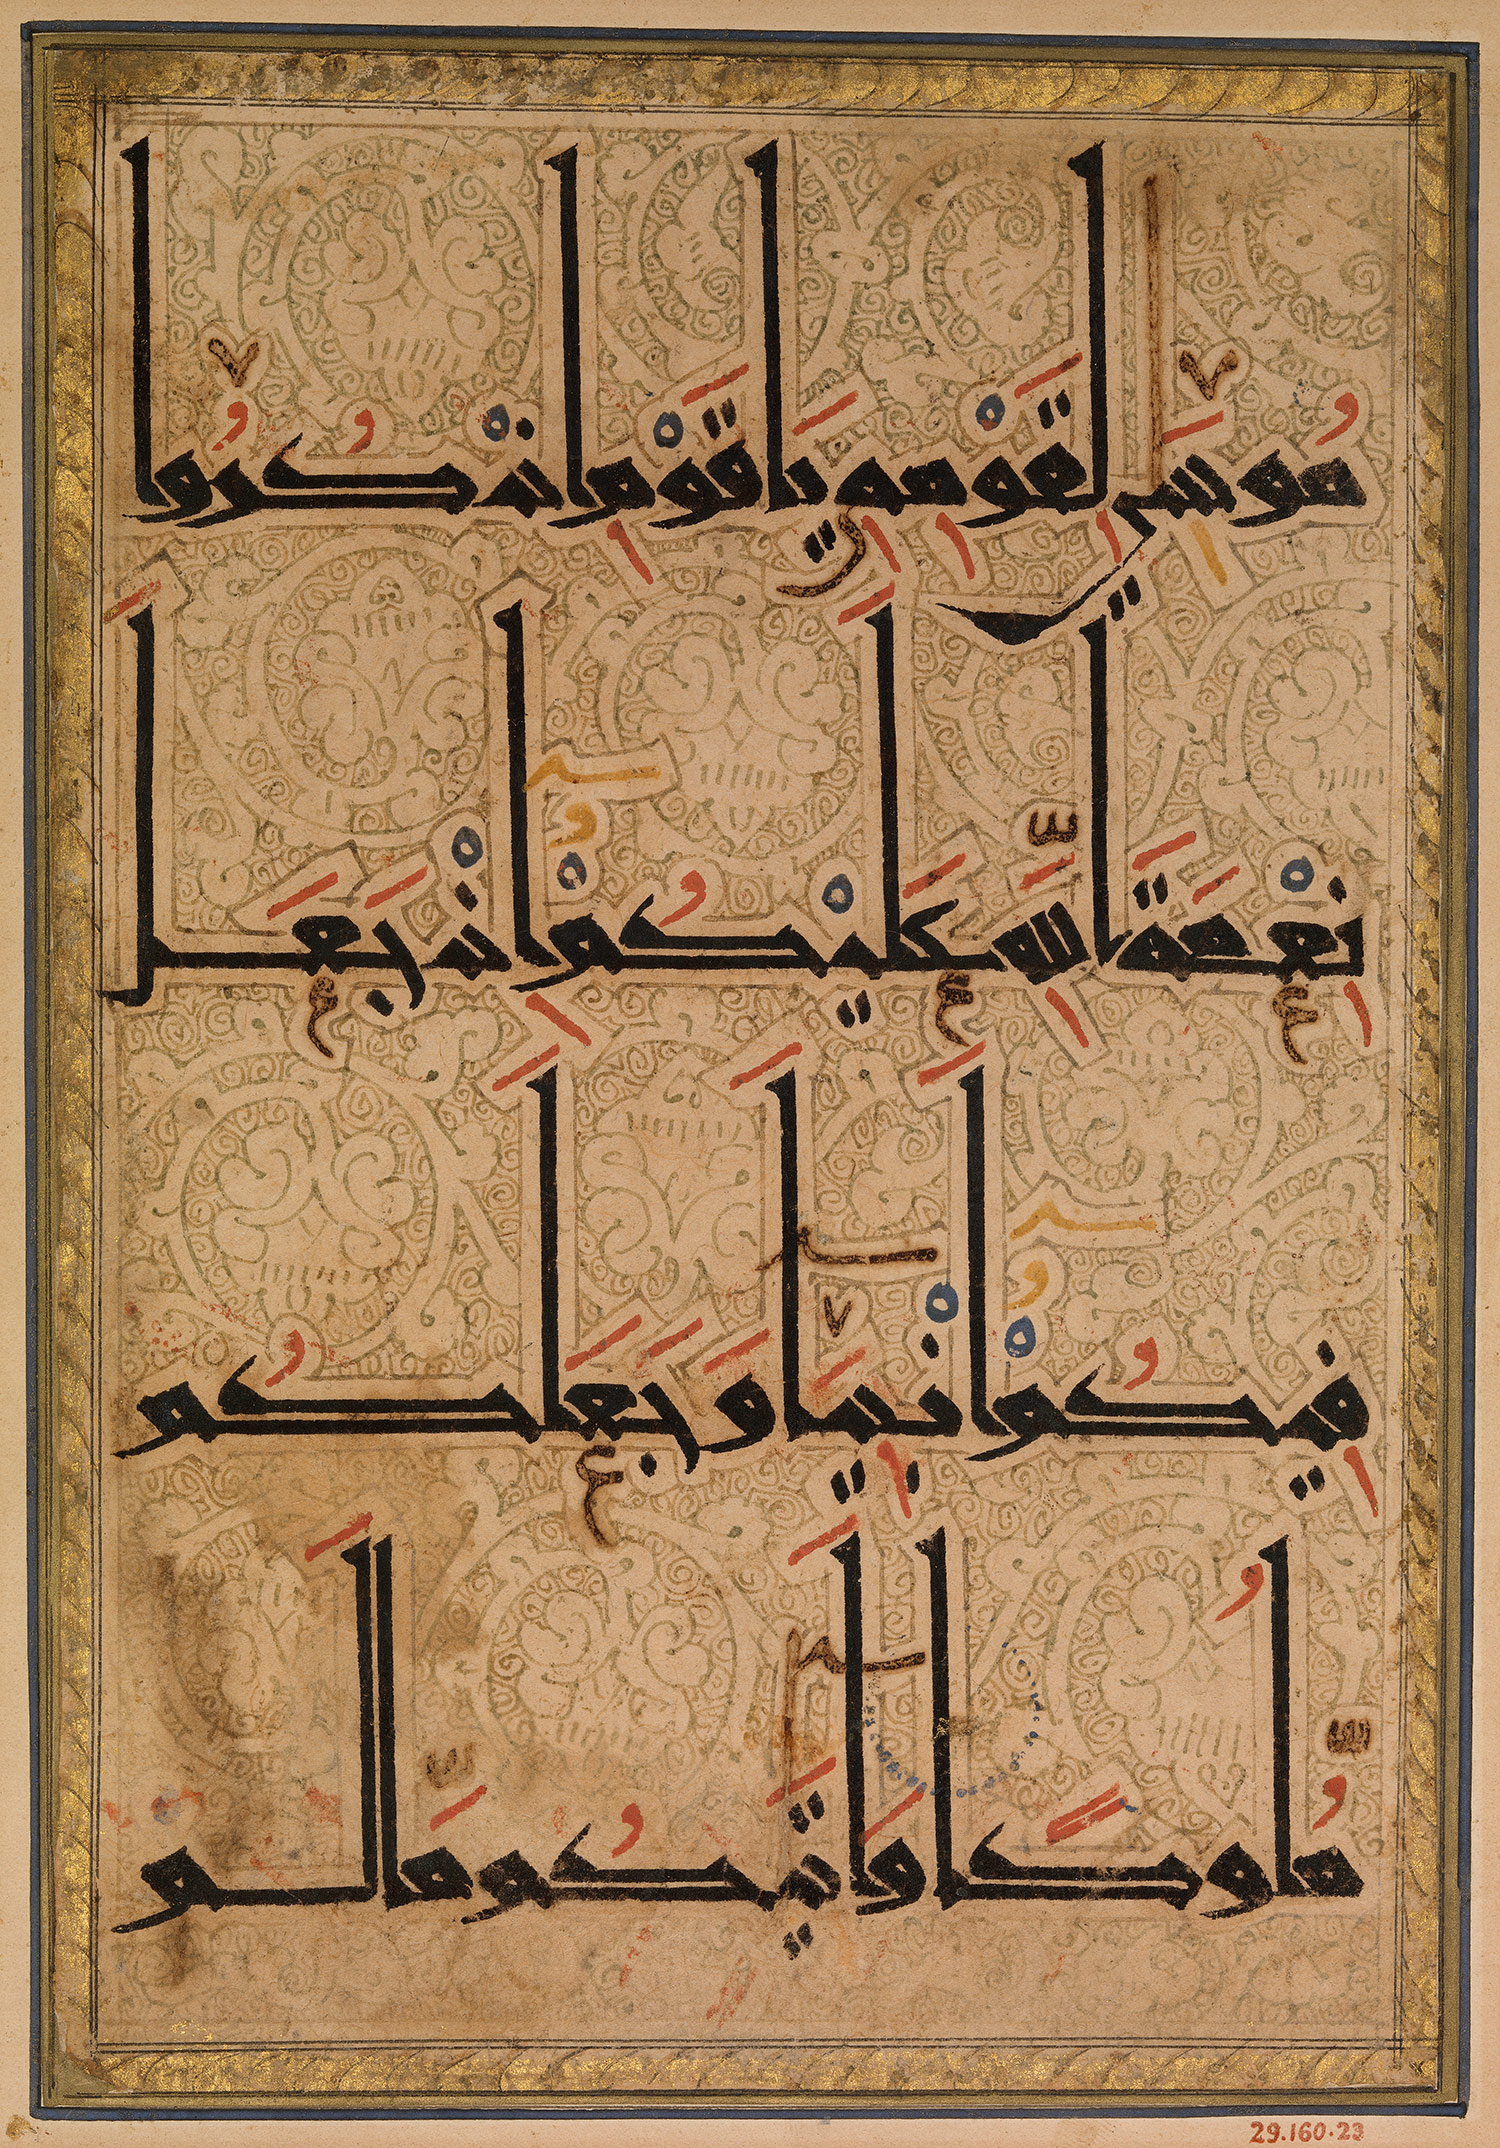 مُوسَىٰ لِقَوْمِهِ يَا قَوْمِ اذْكُرُوا
نِعْمَةَ اللَّهِ عَلَيْكُمْ إِذْ جَعَلَ
فِيكُمْ أَنْبِيَاءَ وَجَعَلَكُمْ
مُلُوكًا وَآتَيٰكُمْ مَا لَمْ
29.160.23